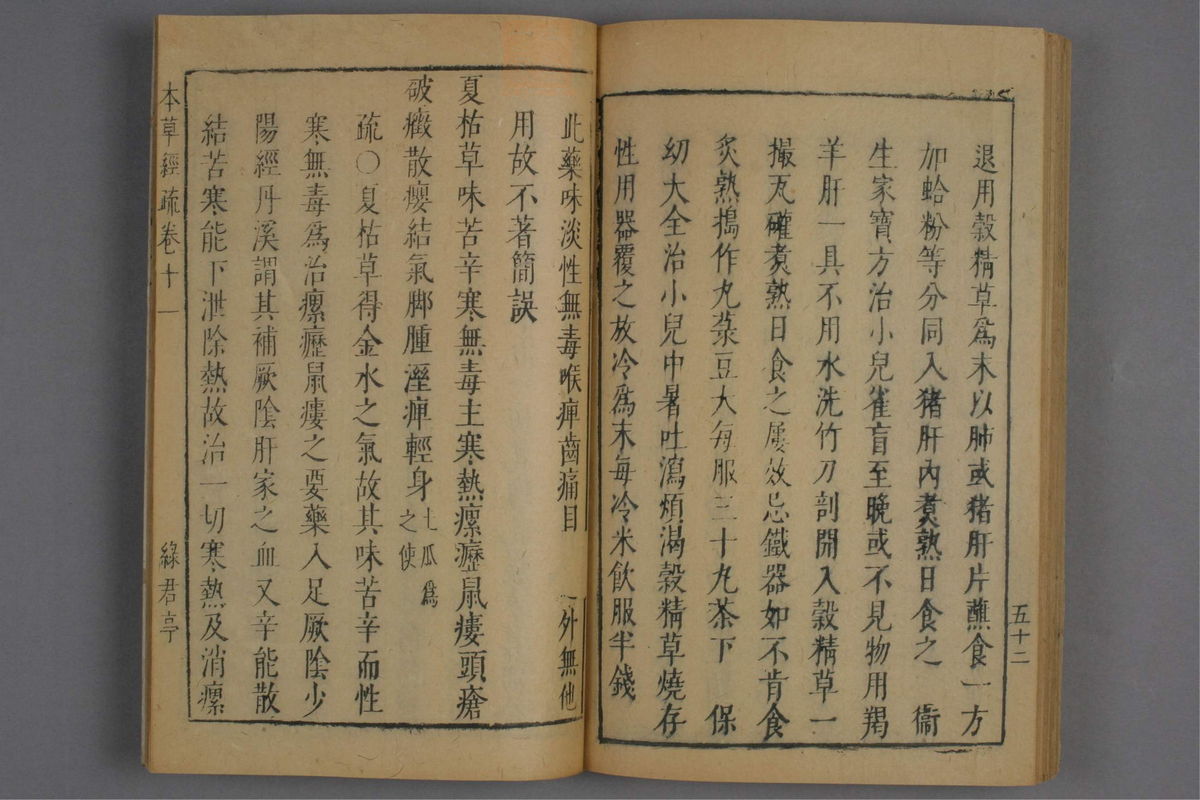 退用穀精草爲末以肺或猪肝片蘸食一方
加蛤粉等分同入猪肝內煮熟日食之　衞
生家寶方治小兒雀盲至晚或不見物用羯
羊肝一具不用水洗竹刀剖開入穀精草一
撮瓦確煮熟日食之屡效忌鐵器如不肯食
炙熟搗作丸菉豆大每服三十丸茶下　保
幼大全治小兒中暑吐瀉煩渴穀精草燒存
性用器覆之放冷爲末每冷米飲服半錢
五十二
此藥味淡性無毒喉痺齒痛目　外無他
用故不著簡誤
夏枯草味苦辛寒無毒主寒熱瘰癧鼠瘻頭瘡
破癥散癭結氣脚腫溼痺輕身土瓜爲之使
疏〇夏枯草得金水之氣故其味苦辛而性
寒無毒爲治瘰癧鼠瘻之要藥入足厥陰少
陽經丹溪謂其補厥陰肝家之血又辛能散
結苦寒能下泄除熱故治一切寒熱及消瘰
本草經疏卷十一
綠君亭